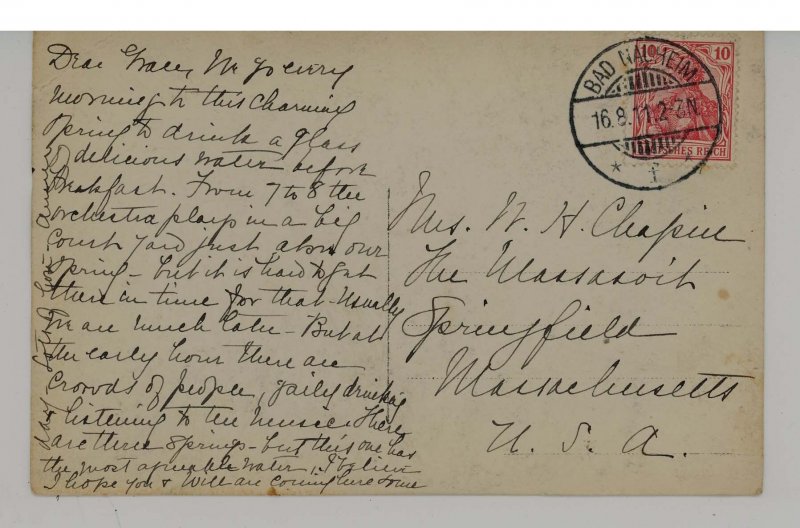 Dear Grace, We go every
morning to this charming
spring to drink a glass
of delicious water before
breakfast. From 7 to 8 the
orchestra plays in a big
court yard just above our
spring - but it is hard to get
there in time for that - Usually
we are much later - But at
the early hour there are
crowds of people, gaily drinking
& listening to the music. There
are three springs - but this one has
the most agreeable water, I believe
I hope you & Will are coming here some
day Lots of love -
Mrs. W. H. Chapin
The Massasoit
Springfield
Massachusetts
U. S. A.
BAD NAUHEIM
16.8.11.2-3N.
* 1 *
10
DEUTSCHES REICH